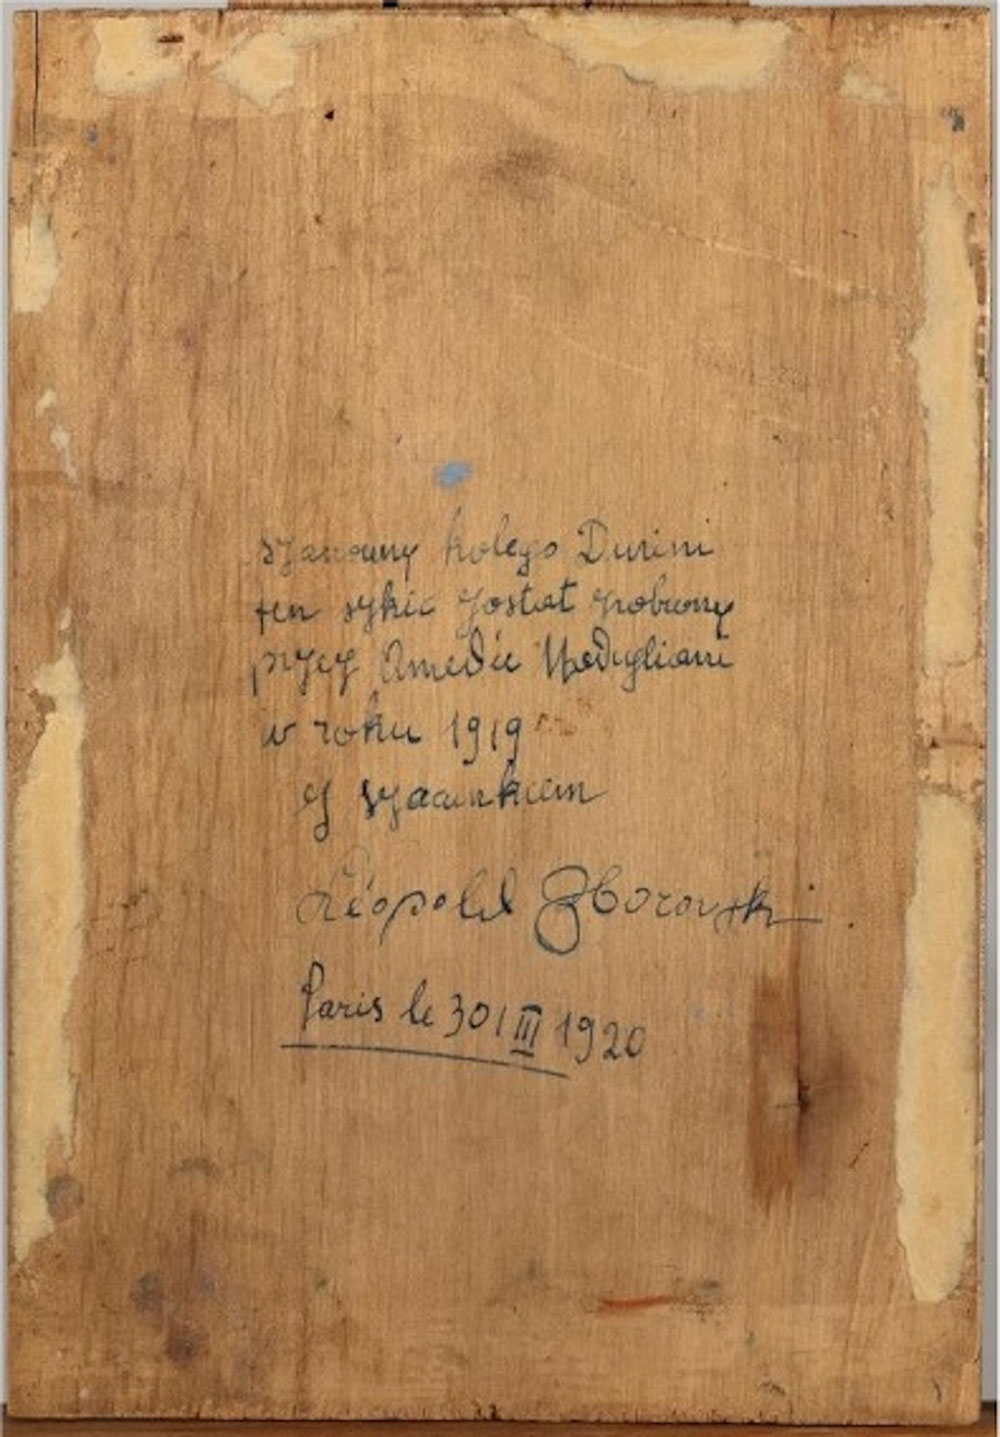 szanowny kolego Durini
ten szkic zostat zrobiony
przez Amedée Modigliani
w roku 1919
z szacunkiem
Léopold Zborowski.
Paris le 30/III 1920